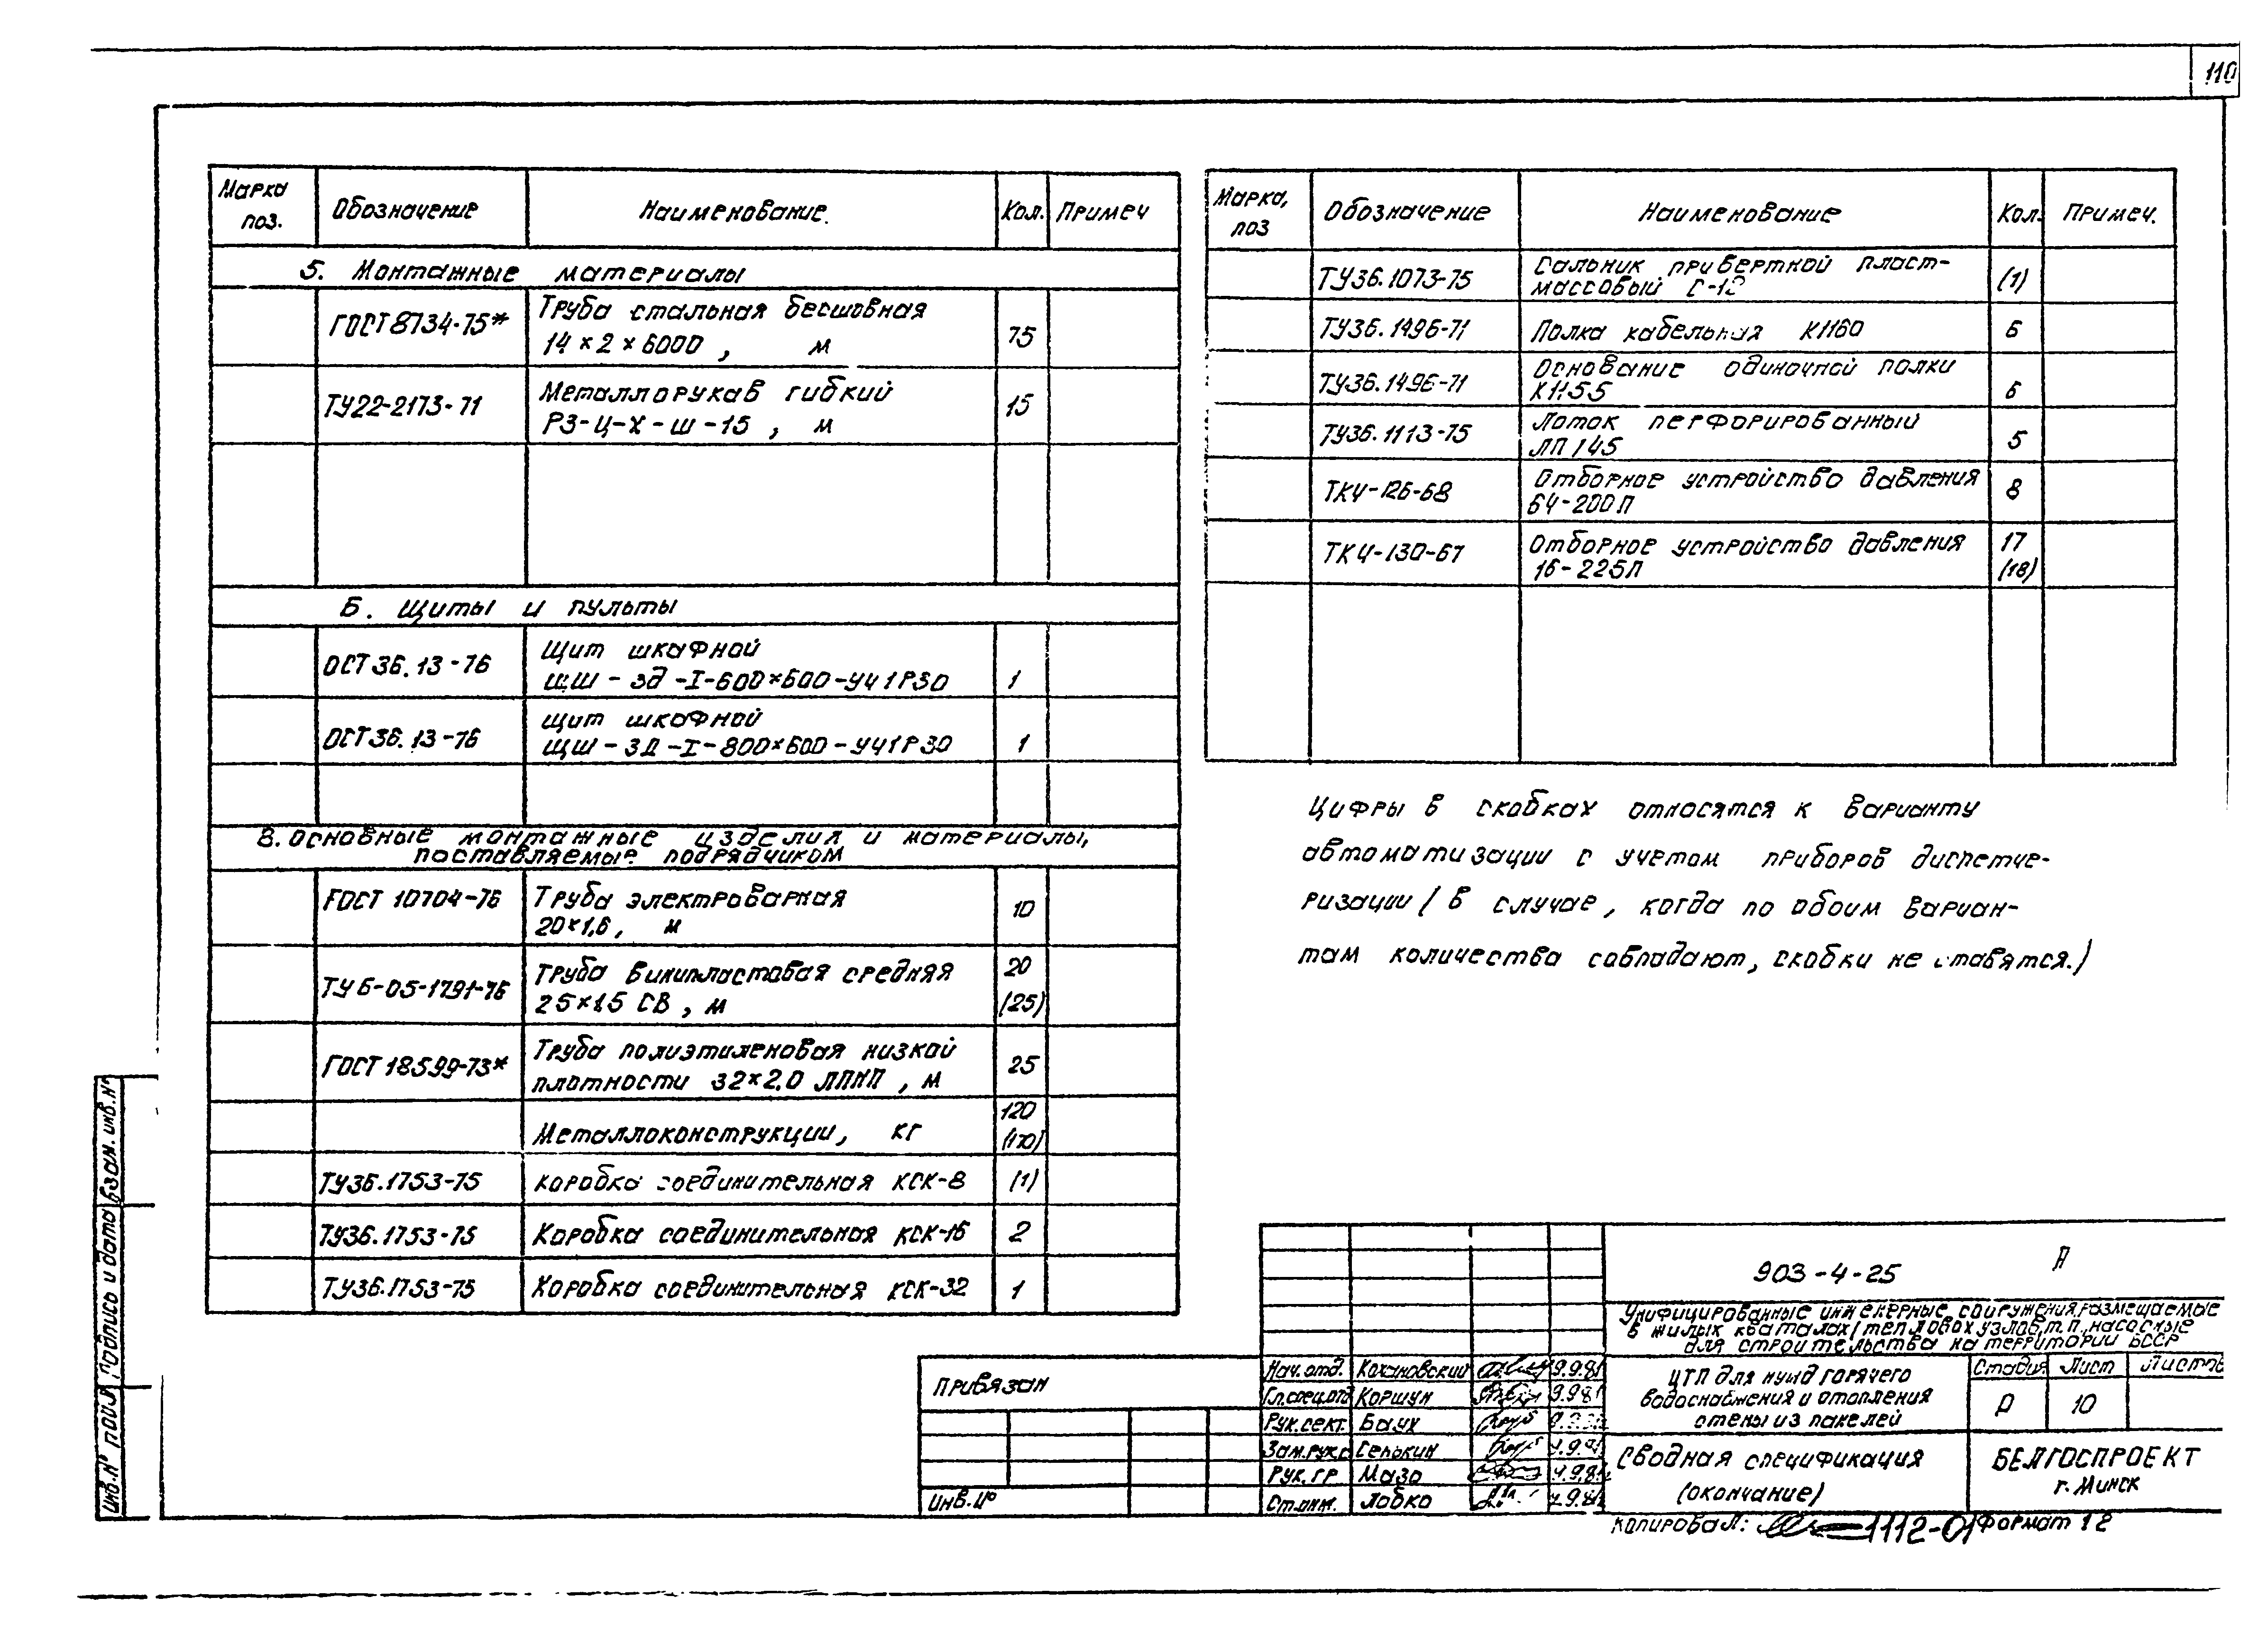 110
Марка поз. Обозначение Наименование. Кол. Примеч
5. Монтажные материалы
ГОСТ 8734-75* Труба стальная бесшовная
14×2×6000, м 75
ТУ22-2173-71 Металлорукав гибкий
РЗ-Ц-Х-Ш-15, м 15
6. Щиты и пульты
ОСТ 36.13-76 Щит шкафной
ЩШ-ЗД-I-600×600-УЧ1Р30 1
ОСТ 36.13-76 Щит шкафной
ЩШ-ЗД-I-800×600-УЧ1Р30 1
8. Основные монтажные изделия и материалы,
поставляемые подрядчиком
ГОСТ 10704-76 Труба электроварная
20×1,6, м 10
ТУ6-05-1791-76 Труба винипластовая средняя 20
25×1.5 СВ, м (25)
ГОСТ 18599-73* Труба полиэтиленовая низкой
плотности 32×2.0 ЛПНП, м 25
120
Металлоконструкции, кг (170)
ТУ36.1753-75 Коробка соединительная КСК-8 (1)
ТУ36.1753-75 Коробка соединительная КСК-16 2
ТУ36.1753-75 Коробка соединительная КСК-32 1
Марка, поз Обозначение Наименование Кол. Примеч.
ТУ36.1073-75 Сальник привертной пласт-
массовый С-18 (1)
ТУ36.1496-71 Полка кабельная К1160 6
ТУ36.1496-71 Основание одиночной полки
К1155 6
ТУ36.1113-75 Лоток перфорированный
ЛП 145 5
ТКЧ-126-68 Отборное устройство давления
64-200П 8
ТКЧ-130-67 Отборное устройство давления 17
16-225П (18)
Цифры в скобках относятся к варианту
автоматизации с учетом приборов диспетче-
ризации/В случае, когда по обоим вариан-
там количества совпадают, скобки не ставятся./
Взам. инв.№
Подпись и дата
Инв.№ подл
Привязан
Инв.№
903-4-25 А
Унифицированные инженерные сооружения, размещаемые
в жилых кварталах/тепловых узлов, т.п., насосные
для строительства на территории БССР
Нач.отд. Кохановский 9.9.81
Гл.спец.отд Коршун 9.9.81
Рук.сект. Баух
Зам.рук.с Селькин
Рук.гр Мазо
Ст.инж. Лобко
ЦТП для нужд горячего
водоснабжения и отопления
стены из панелей
Стадия Лист Листов
Р 10
Сводная спецификация
(окончание)
БЕЛГОСПРОЕКТ
г. Минск
Копировал: 1112-01 Формат 12